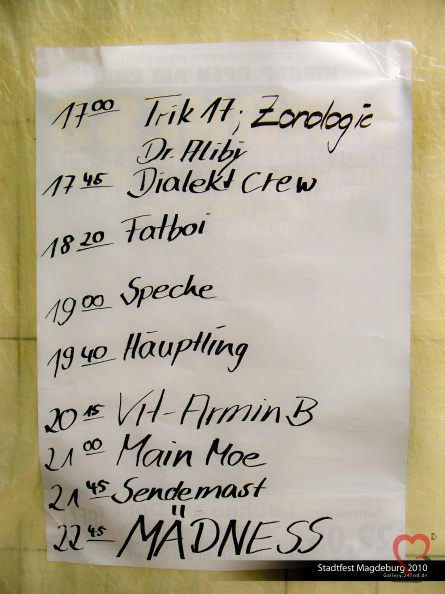 17 00 Trik 17; Zonologic
Dr. Alibi
17 45 Dialekt Crew
18 20 Fatboi
19 00 Speche
19 40 Häuptling
20 15 Vit-Armin B
21 00 Main Moe
21 45 Sendemast
22 45 MÄDNESS
Stadtfest Magdeburg 2010
Gallery.24and.de